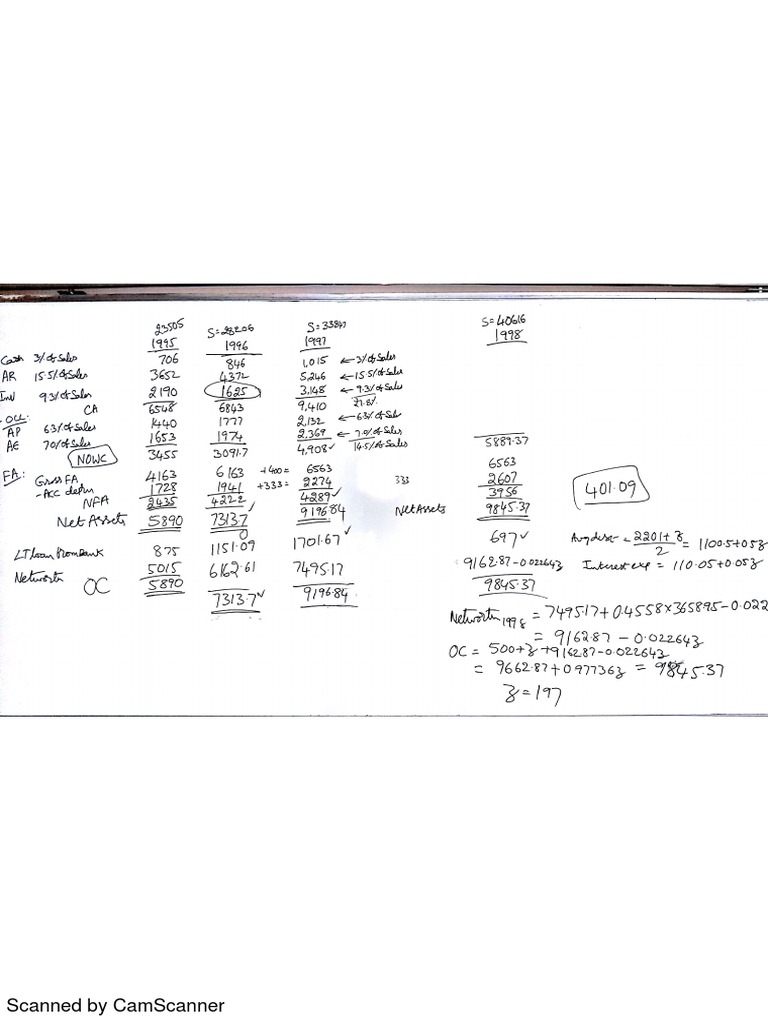 23505 S=28206 S=33847 S=40616
1995 1996 1997 1998
Cash 3% of Sales 706 846 1,015 ← 3% of Sales
AR 15.5% of Sales 3652 4372 5,246 ← 15.5% of Sales
Inv 9.3% of Sales 2190 1625 3,148 ← 9.3% of Sales
CA 6548 6843 9,410 27.8%
OCL:
AP 6.3% of Sales 1440 1777 2,132 ← 6.3% of Sales
AE 7.0% of Sales 1653 1974 2,369 ← 7.0% of Sales
NOWC 3455 3091.7 4,908 ✓ 14.5% of Sales 5889.37
FA: Gross FA 4163 6163 +400= 6563 6563
-Acc depn 1728 1941 +333= 2274 333 2607
NFA 2435 4222 4289 ✓ 3956
401.09
Net Assets 5890 7313.7 ✓ 9196.84 Net Assets 9845.37
0
LT loan from Bank 875 1151.09 1701.67 ✓ 697 ✓
Networth 5015 6162.61 7495.17 9162.87-0.02264z
OC 5890 7313.7 ✓ 9196.84 9845.37
Avg debt = 2201+z / 2 = 1100.5+0.5z
Interest exp = 110.05+0.05z
Networth 1998 = 7495.17+0.4558×3658.95-0.022
= 9162.87 - 0.02264z
OC = 500+z+9162.87-0.02264z
= 9662.87+0.97736z = 9845.37
z = 197
Scanned by CamScanner